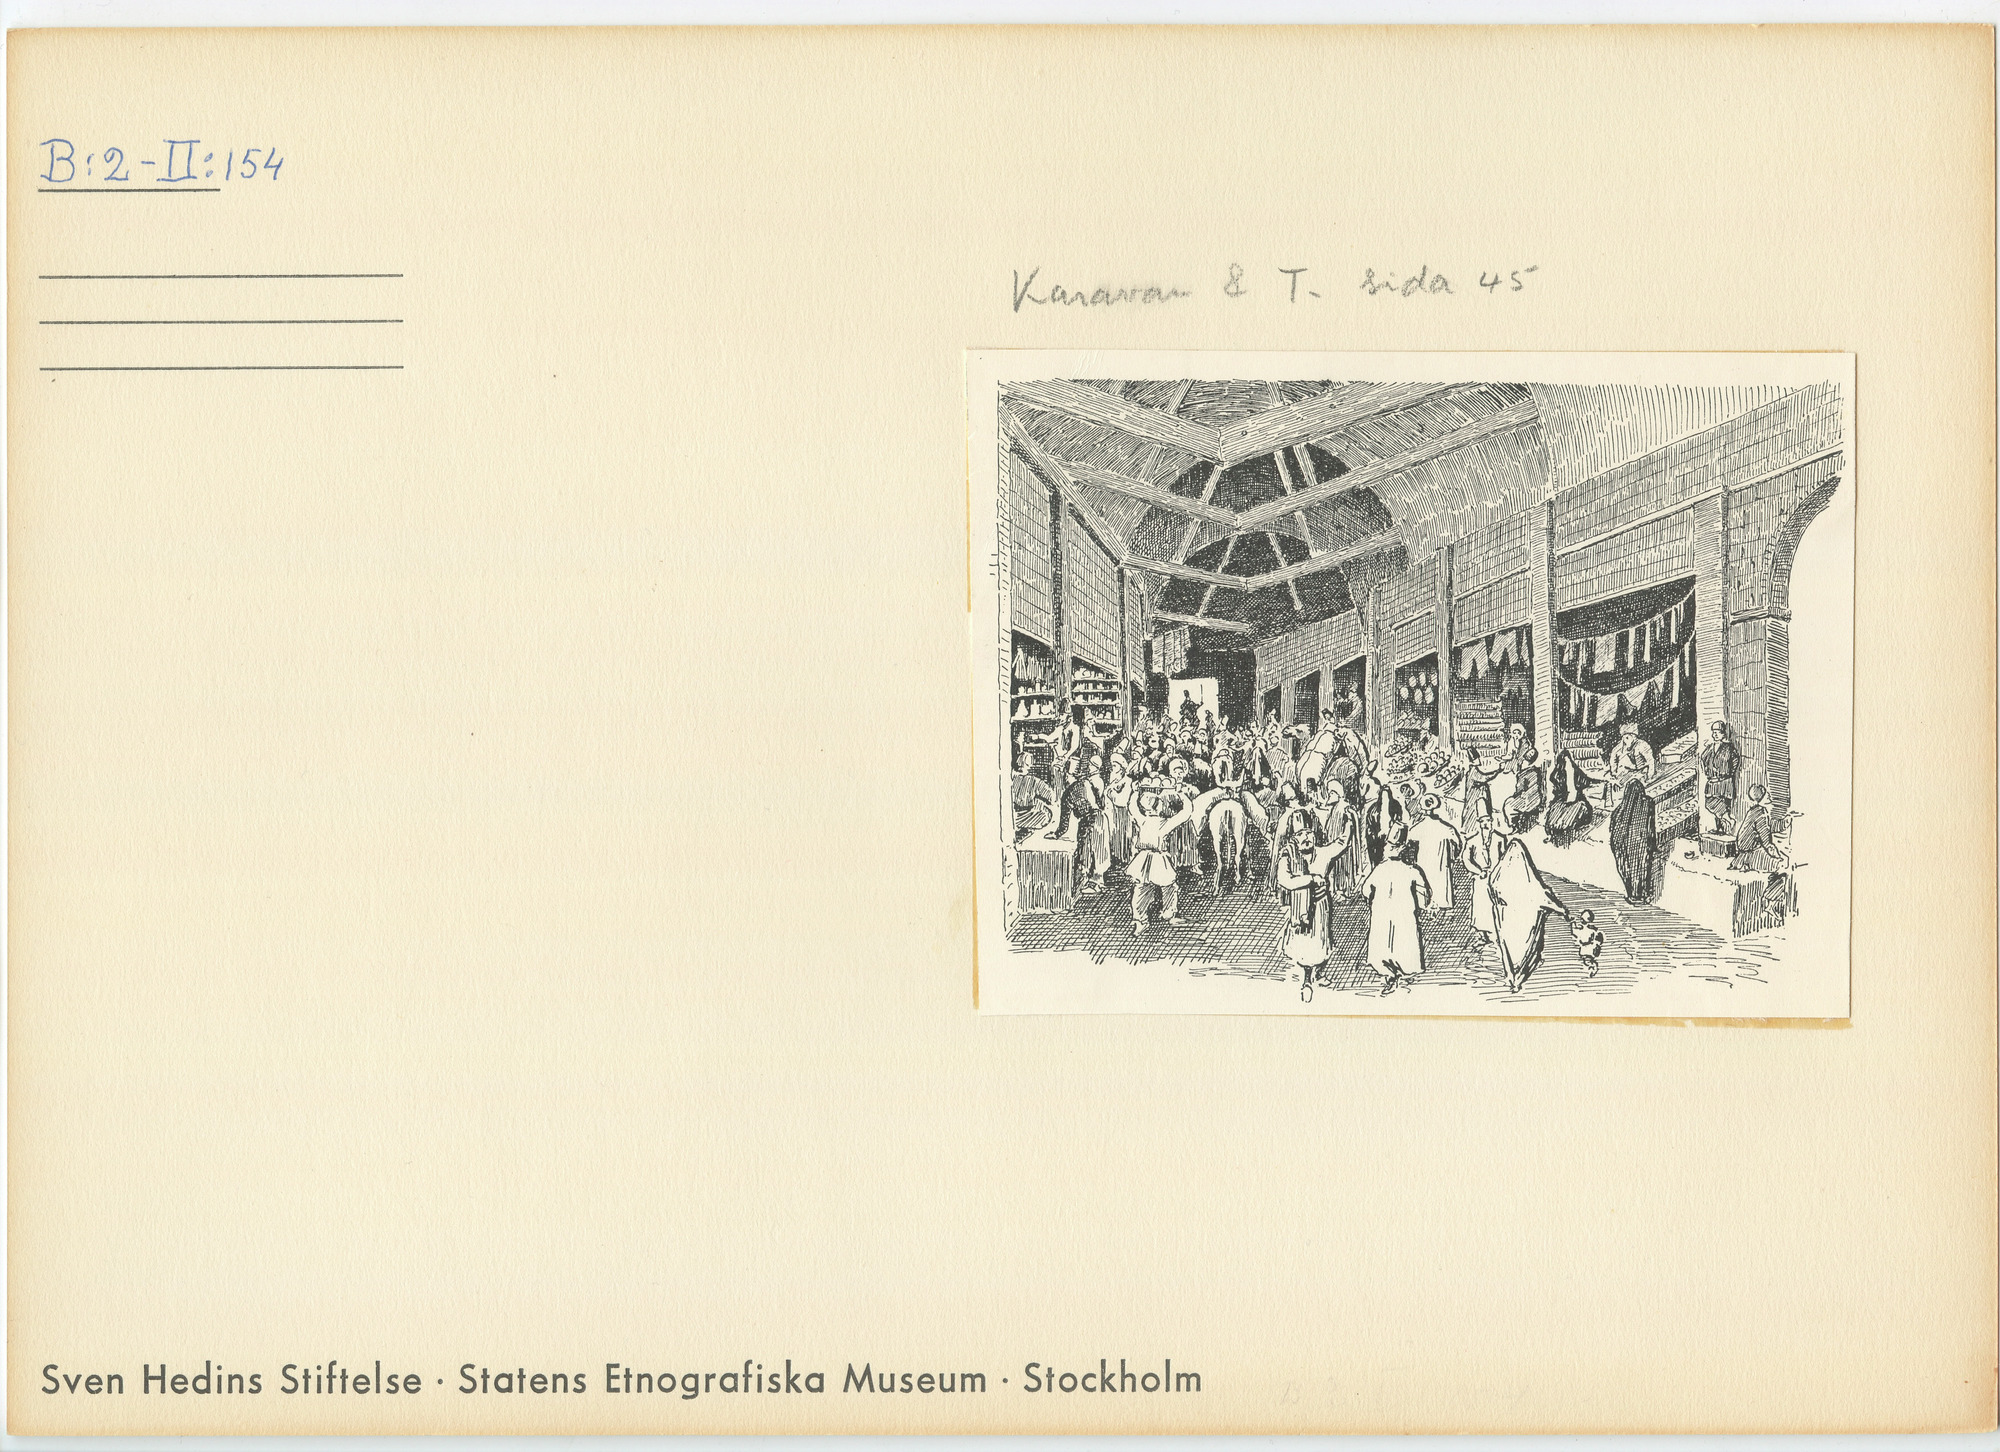 B:2-II:154
Karavan & T. sida 45
Sven Hedins Stiftelse · Statens Etnografiska Museum · Stockholm